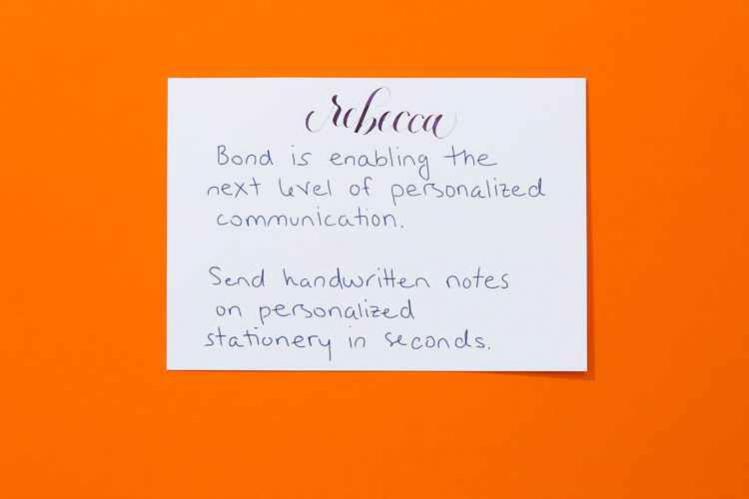 rebecca
Bond is enabling the
next level of personalized
communication.
Send handwritten notes
on personalized
stationery in seconds.